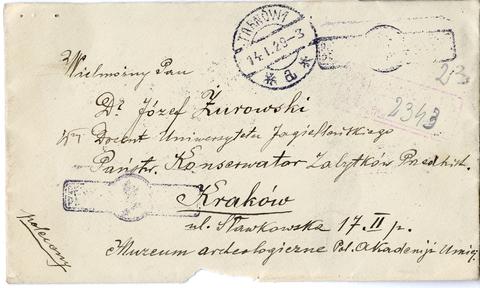 TARNÓW 1
14.I.29-3
* d *
23
2343
Wielmożny Pan
Dr Józef Żurowski
Docent Uniwersytetu Jagiellońskiego
Państw. Konserwator Zabytków Przedhist.
Kraków
ul. Sławkowska 17. II p.
Muzeum archeologiczne Pol. Akademji Umiej.
polecony